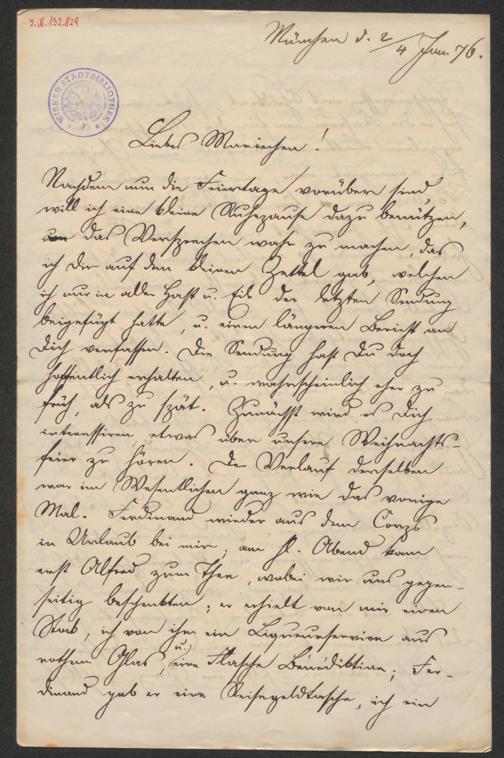 J. N. 132.829
WIENER STADTBIBLIOTHEK
München d. 2/4 Jan. 76.
Liebes Mariechen!
Nachdem nun die Feiertage vorüber sind,
will ich eine kleine Ruhepause dazu benützen,
um das Versprechen wahr zu machen, das
ich Dir auf dem kleinen Zettel gab, welchen
ich nur in aller Hast u. Eile der letzten Sendung
beigefügt hatte, u. einen längeren Bericht an
Dich verfassen. Die Sendung hast Du doch
hoffentlich erhalten, u. wahrscheinlich eher zu
früh, als zu spät. Zunächst wird es Dich
interessiren, etwas über unsere Weihnachts-
feier zu hören. Der Verlauf derselben
war im Wesentlichen ganz wie das vorige
Mal. Ferdinand wieder aus dem Corps
in Urlaub bei mir, am hl. Abend kam
erst Alfred zum Thee, wobei wir uns gegen-
seitig beschenkten; er erhielt von mir einen
Stock, ich von ihm ein Liqueurservice aus
rothem Glas, u. eine Flasche Bénédiktine; Fer-
dinand gab er eine Reisegeldtasche, ich ein